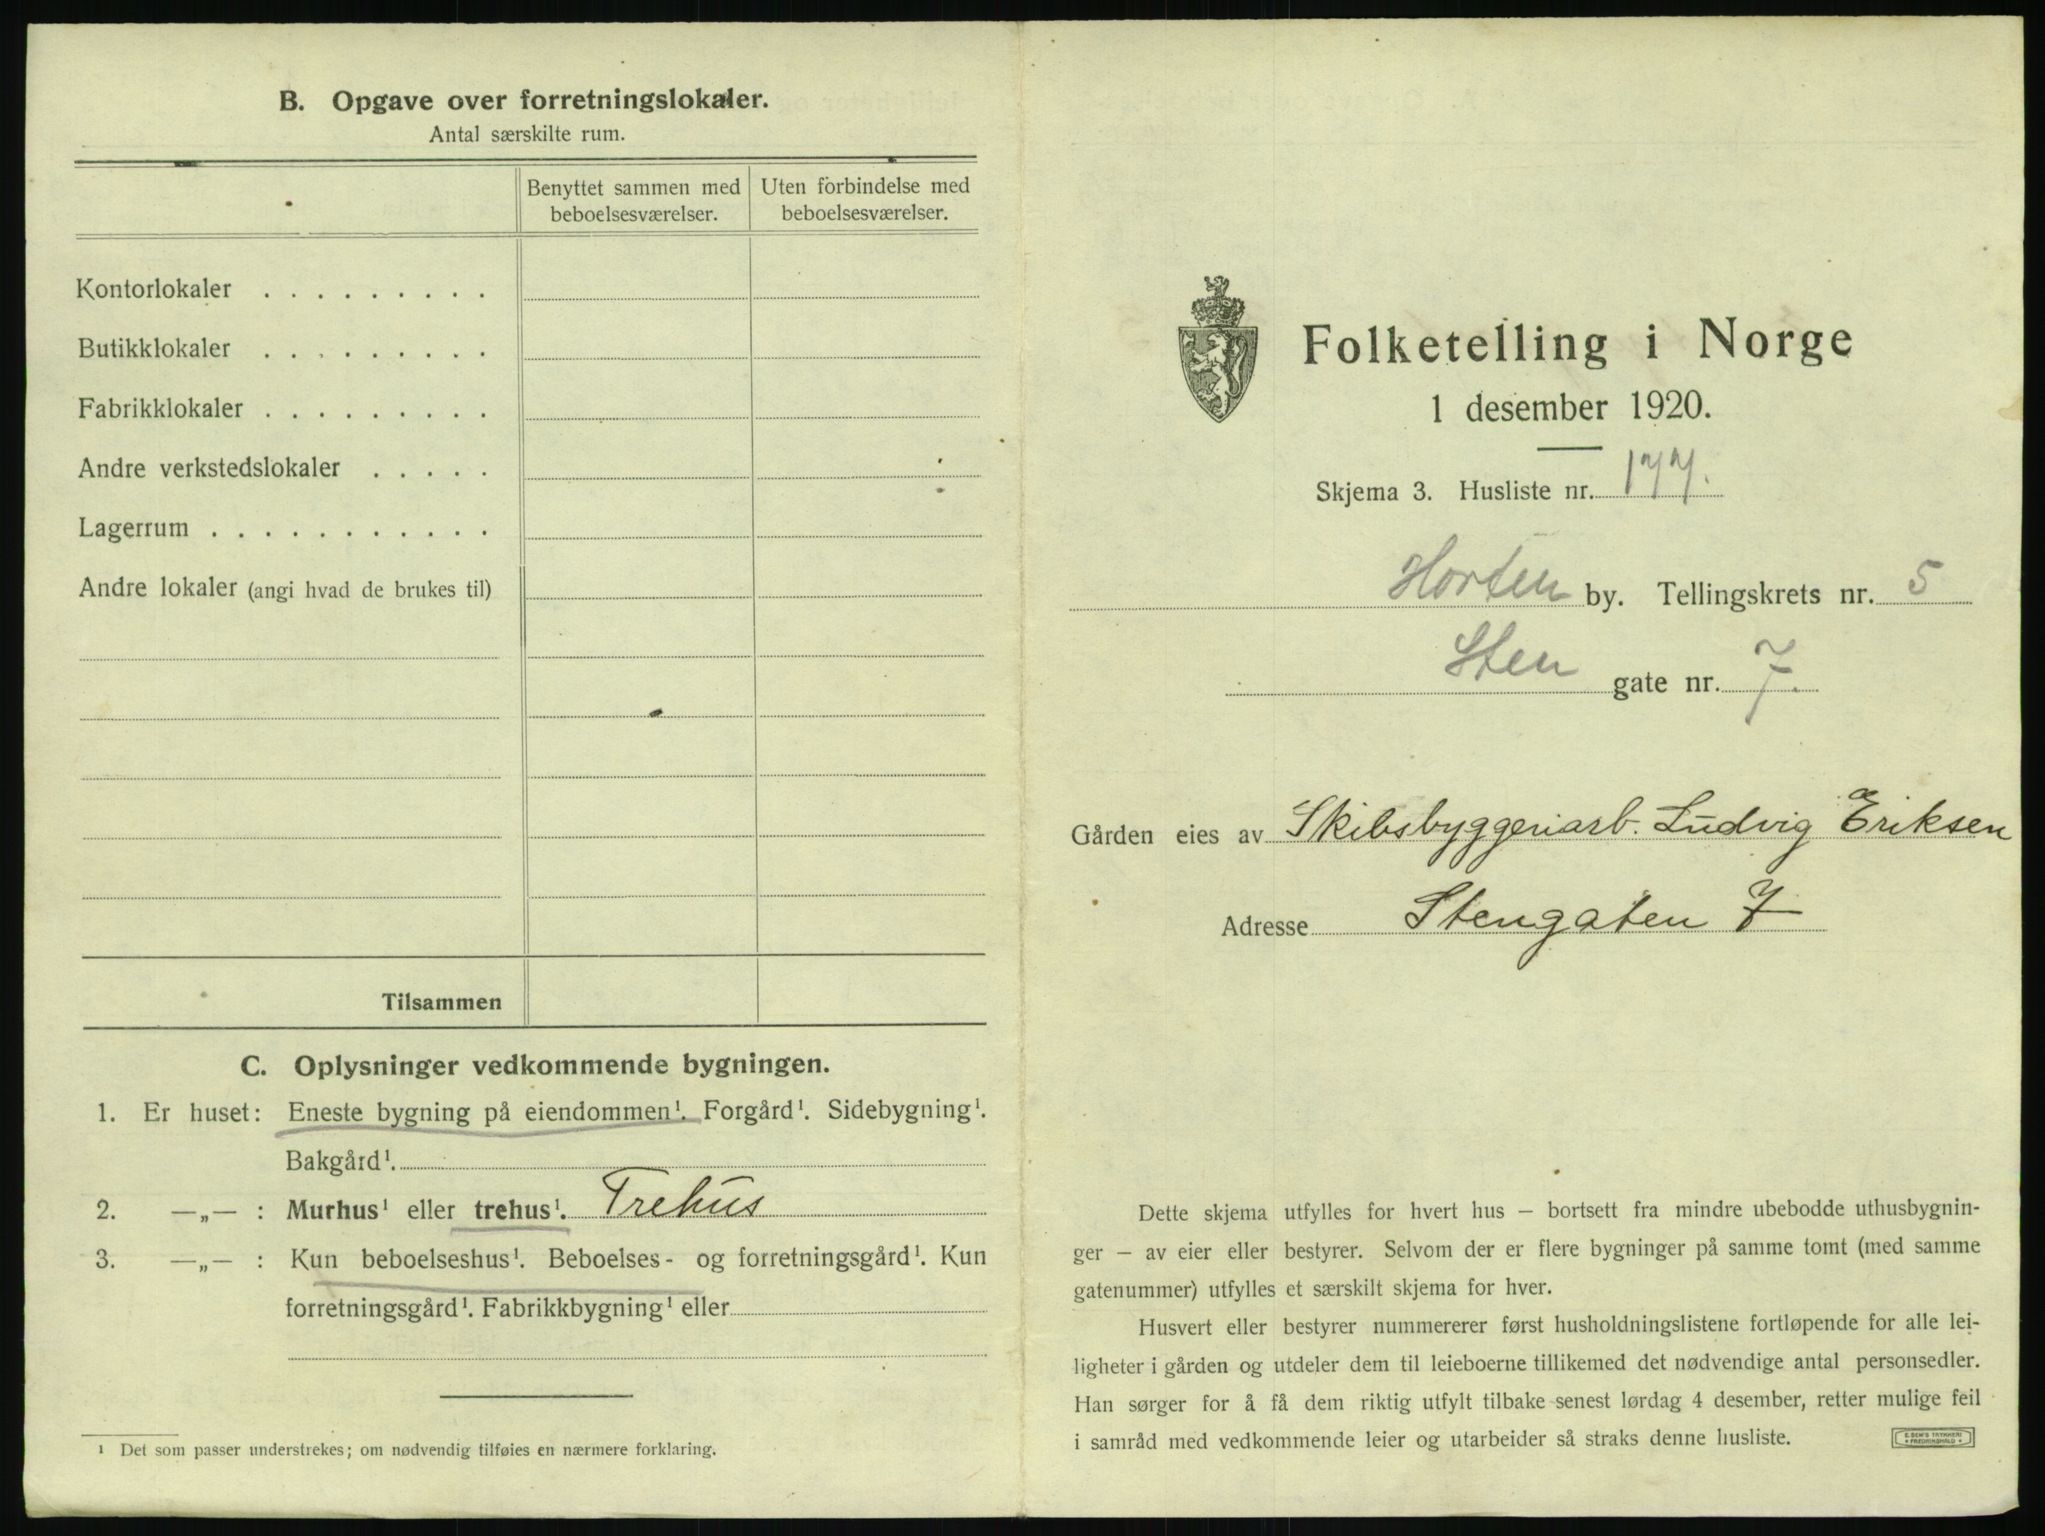 B. Opgave over forretningslokaler.
Antal særskilte rum.
Benyttet sammen med beboelsesværelser.
Uten forbindelse med beboelsesværelser.
Kontorlokaler . . . . . . . . .
Butikklokaler . . . . . . . . .
Fabrikklokaler . . . . . . . . .
Andre verkstedslokaler . . . . .
Lagerrum . . . . . . . . . . .
Andre lokaler (angi hvad de brukes til)
Tilsammen
C. Oplysninger vedkommende bygningen.
1. Er huset: Eneste bygning på eiendommen¹. Forgård¹. Sidebygning¹.
Bakgård¹.
2. —„— : Murhus¹ eller trehus¹. Trehus
3. —„— : Kun beboelseshus¹. Beboelses- og forretningsgård¹. Kun
forretningsgård¹. Fabrikkbygning¹ eller
¹ Det som passer understrekes; om nødvendig tilføies en nærmere forklaring.
Folketelling i Norge
1 desember 1920.
Skjema 3. Husliste nr. 177.
Horten by. Tellingskrets nr. 5
Sten gate nr. 7.
Gården eies av Skibsbyggeriarb. Ludvig Eriksen
Adresse Stengaten 7
Dette skjema utfylles for hvert hus – bortsett fra mindre ubebodde uthusbygnin-
ger – av eier eller bestyrer. Selvom der er flere bygninger på samme tomt (med samme
gatenummer) utfylles et særskilt skjema for hver.
Husvert eller bestyrer nummererer først husholdningslistene fortløpende for alle lei-
ligheter i gården og utdeler dem til leieboerne tillikemed det nødvendige antal personsedler.
Han sørger for å få dem riktig utfylt tilbake senest lørdag 4 desember, retter mulige feil
i samråd med vedkommende leier og utarbeider så straks denne husliste.
E. SEM'S TRYKKERI
FREDRIKSHALD